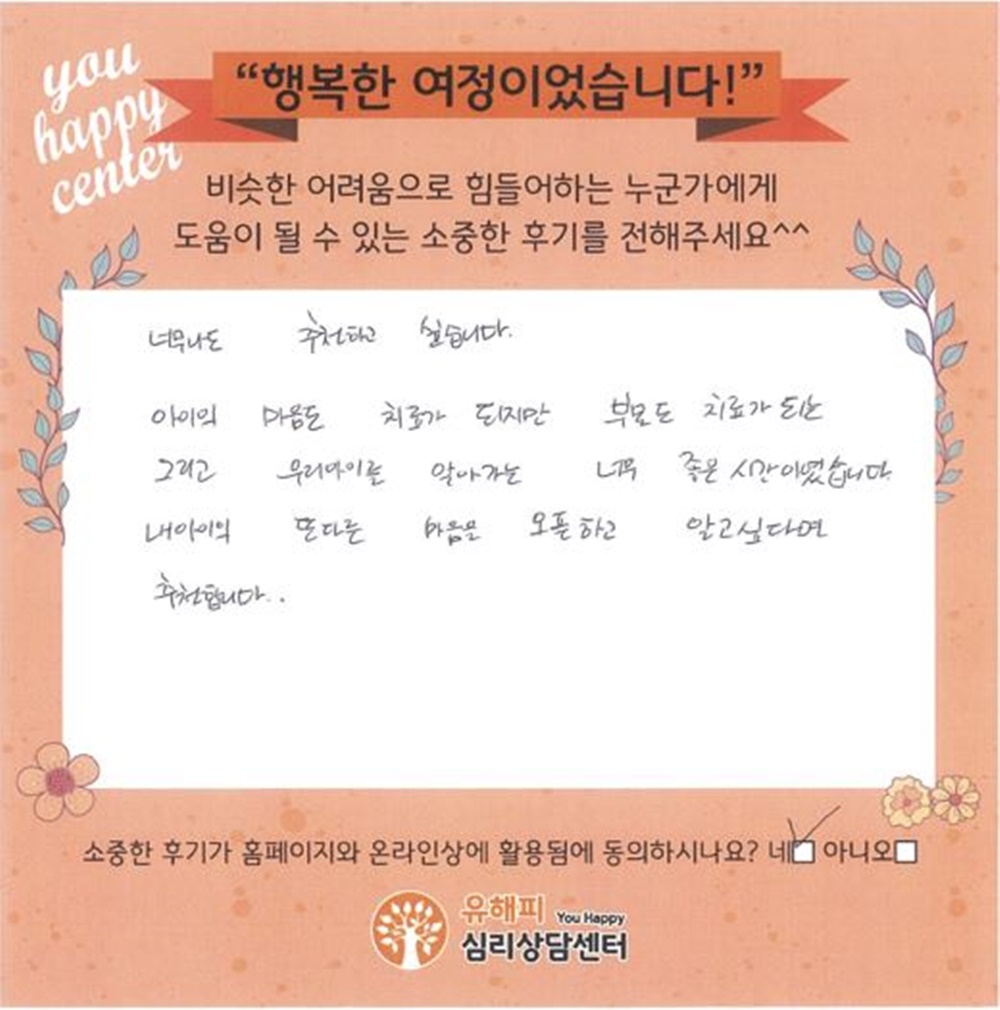 you
happy
center
“행복한 여정이었습니다!”
비슷한 어려움으로 힘들어하는 누군가에게
도움이 될 수 있는 소중한 후기를 전해주세요^^
너무나도 추천하고 싶습니다.
아이의 마음도 치료가 되지만 부모도 치료가 되는
그리고 우리아이를 알아가는 너무 좋은 시간이였습니다.
내아이의 또다른 마음을 오픈하고 알고싶다면
추천합니다..
소중한 후기가 홈페이지와 온라인상에 활용됨에 동의하시나요? 네 아니오
유해피 You Happy
심리상담센터